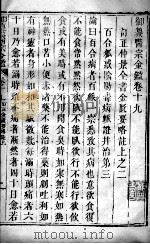 御纂醫宗金鑑卷十九
訂正仲景全書金匱要略註上之二
百合狐惑陰陽毒病脈證并治第三
論曰百合病者百脈一宗悉致其病也意欲食復
不能食常默然欲臥不能臥欲行不能行飲
食或有美時或有不用聞食臭時如寒無寒如熱
無熱口苦小便赤諸藥不能治得藥則劇吐利如
有神靈者身形如和其脈微數每溺時頭痛者六
十日乃愈若溺時頭不痛淅然者四十日愈若